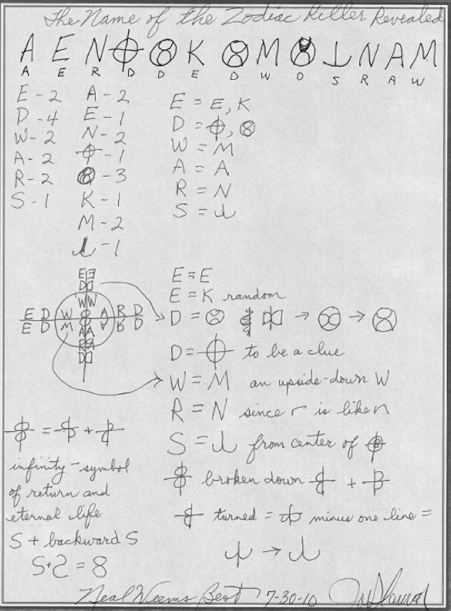 The Name of the Zodiac Killer Revealed
A E N ⌖ ⊗ K ⊗ M ⊗ ⊥ N A M
A E R D D E D W D S R A W
E - 2 A - 2 E = E, K
D - 4 E - 1 D = ⌖, ⊗
W - 2 N - 2 W = M
A - 2 ⌖ - 1 A = A
R - 2 ⊗ - 3 R = N
S - 1 K - 1 S =
M - 2
- 1
E = E
E = K random
D = → ⊗ → ⊗
D = ⌖ to be a clue
W = M an upside-down W
R = N since r is like n
S = from center of
broken down +
turned = minus one line =
→
= +
infinity - symbol
of return and
eternal life
S + backward S
S + Ƨ = 8
Neal Weems Best 7-30-10